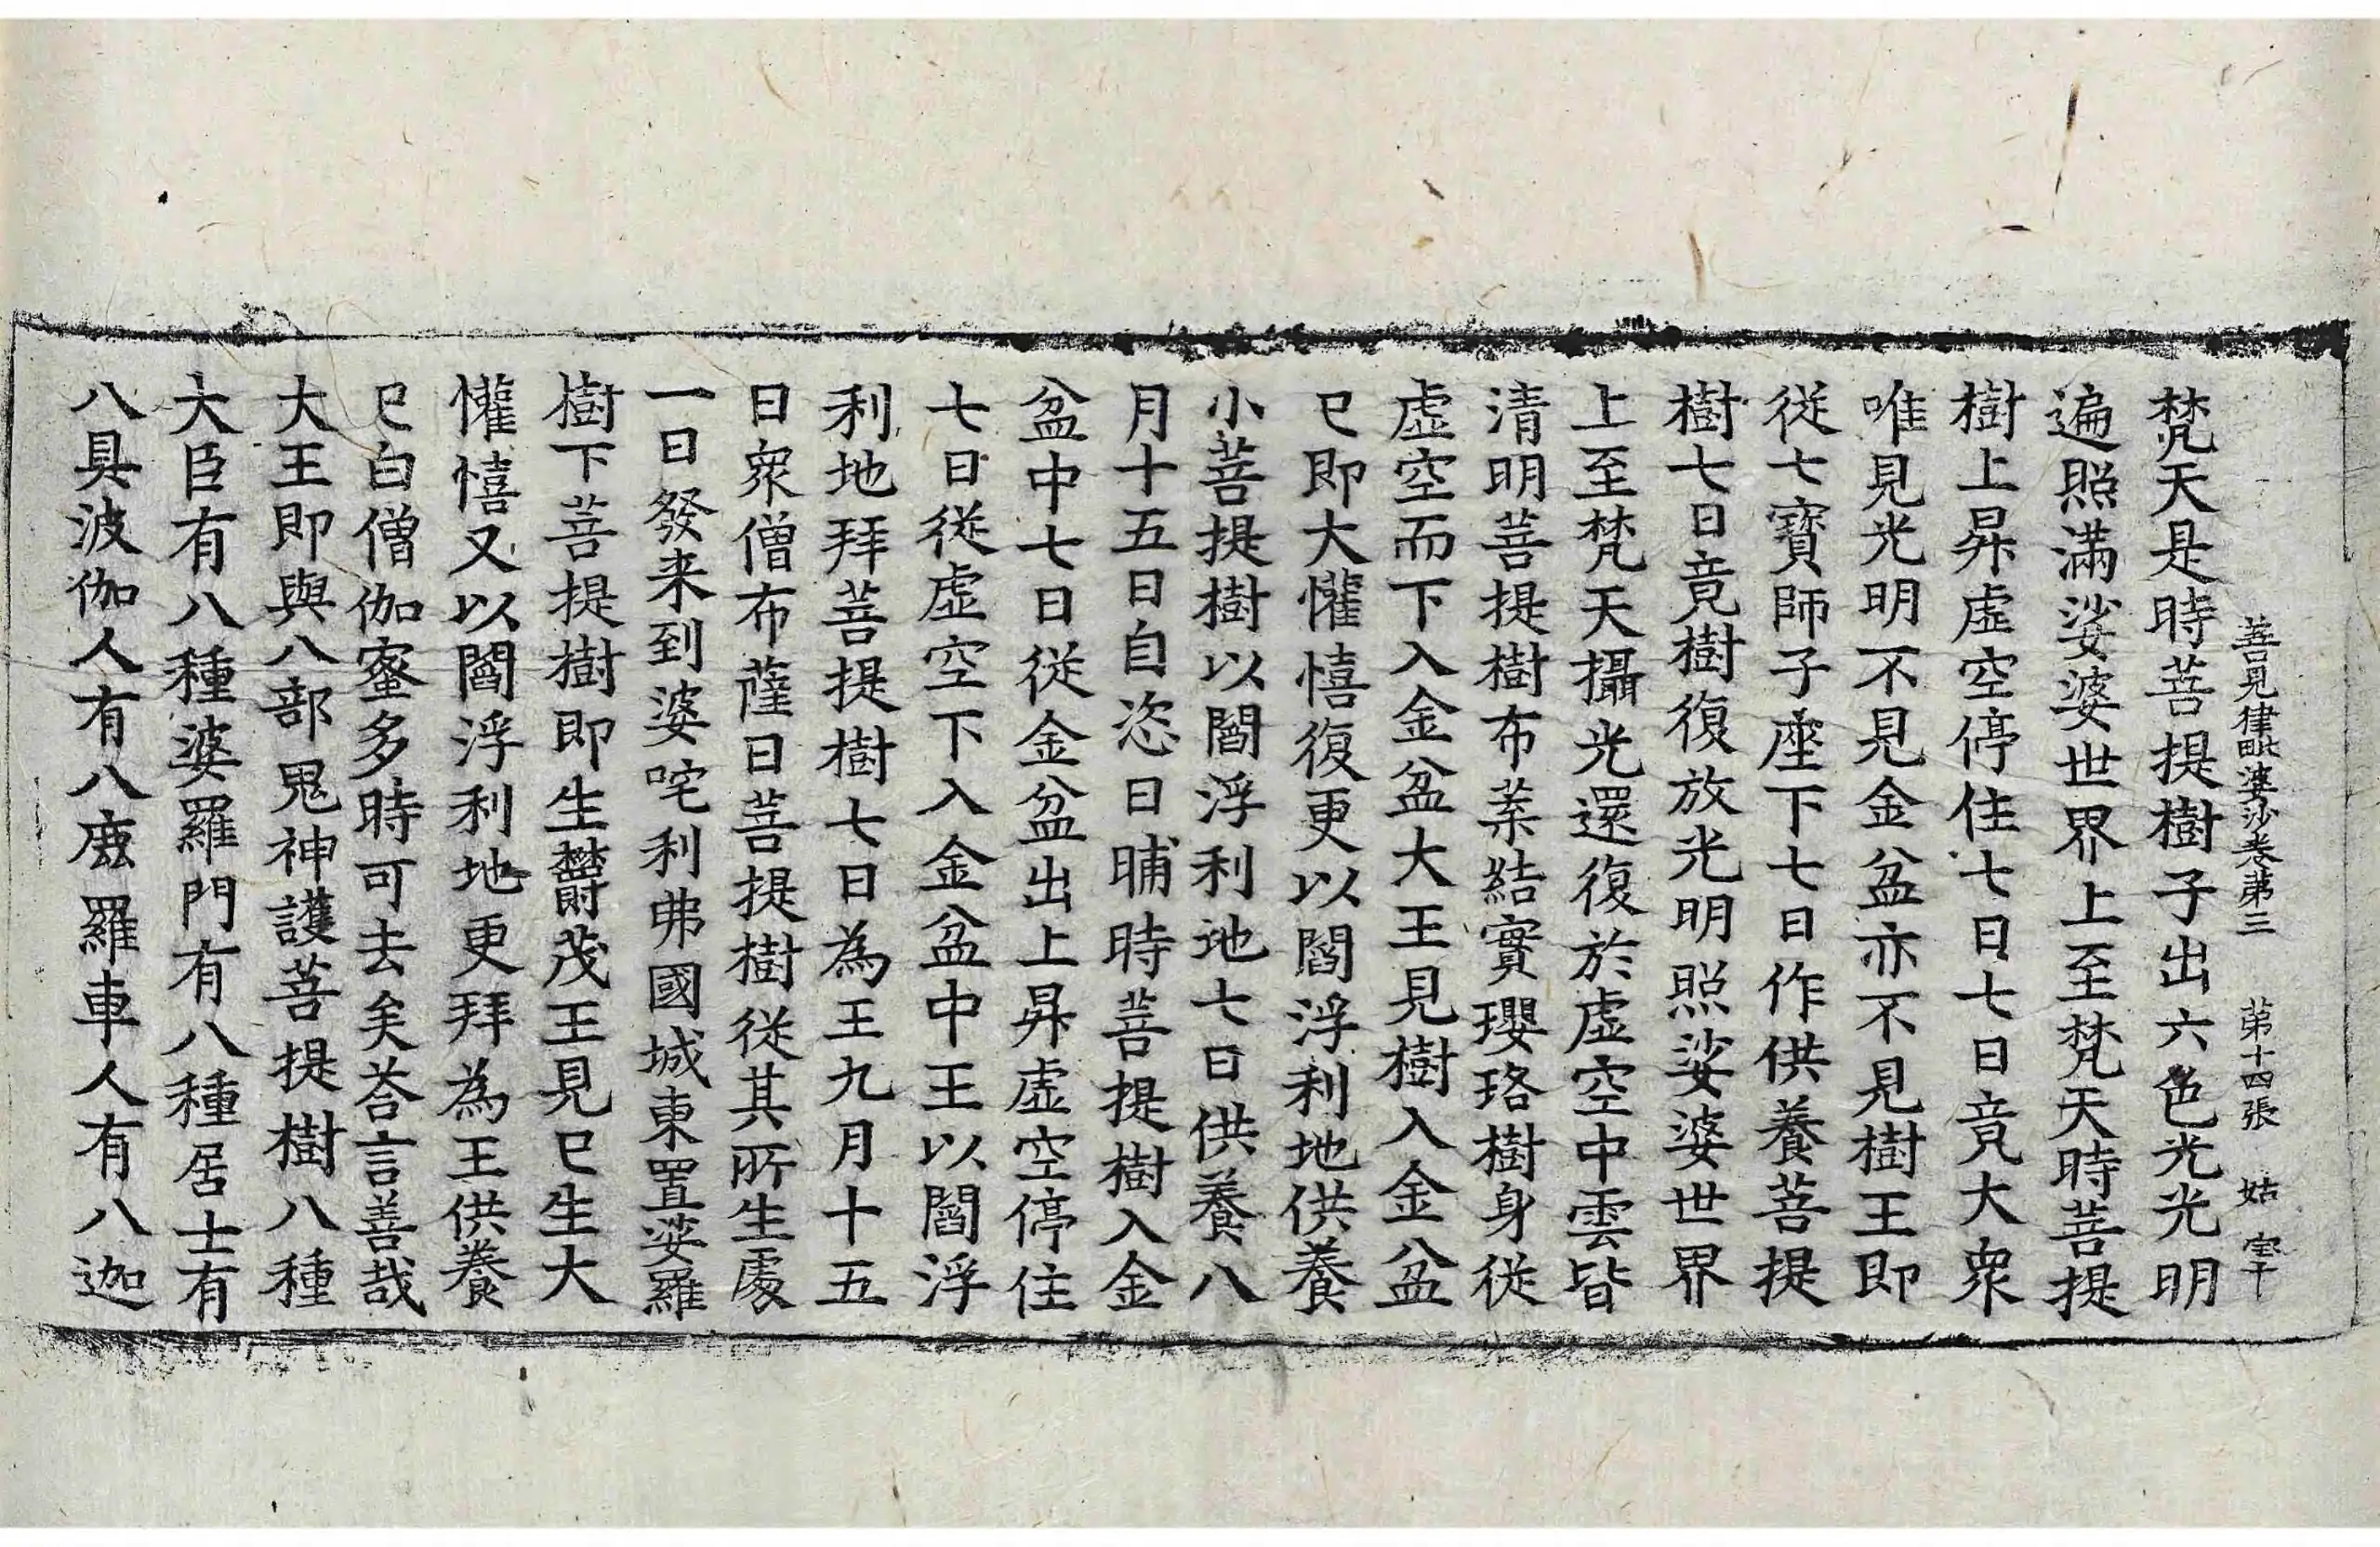 善見律毗婆沙卷第三 第十四張 姑
梵天是時菩提樹子出六色光光明
遍照滿娑婆世界上至梵天時菩提
樹上昇虛空停住七日七日竟大衆
唯見光明不見金盆亦不見樹王即
從七寶師子座下七日作供養菩提
樹七日竟樹復放光明照娑婆世界
上至梵天攝光還復於虛空中雲皆
清明菩提樹布葉結實瓔珞樹身從
虛空而下入金盆大王見樹入金盆
已即大懽憘復更以閻浮利地供養
小菩提樹以閻浮利地七日供養八
月十五日自恣日晡時菩提樹入金
盆中七日從金盆出上昇虛空停住
七日從虛空下入金盆中王以閻浮
利地拜菩提樹七日為王九月十五
日衆僧布薩日菩提樹從其所生處
一日發来到婆咤利弗國城東置娑羅
樹下菩提樹即生欝茂王見已生大
懽憘又以閻浮利地更拜為王供養
已白僧伽蜜多時可去矣荅言善哉
大王即與八部鬼神護菩提樹八種
大臣有八種婆羅門有八種居士有
八具波伽人有八鹿羅車人有八迦